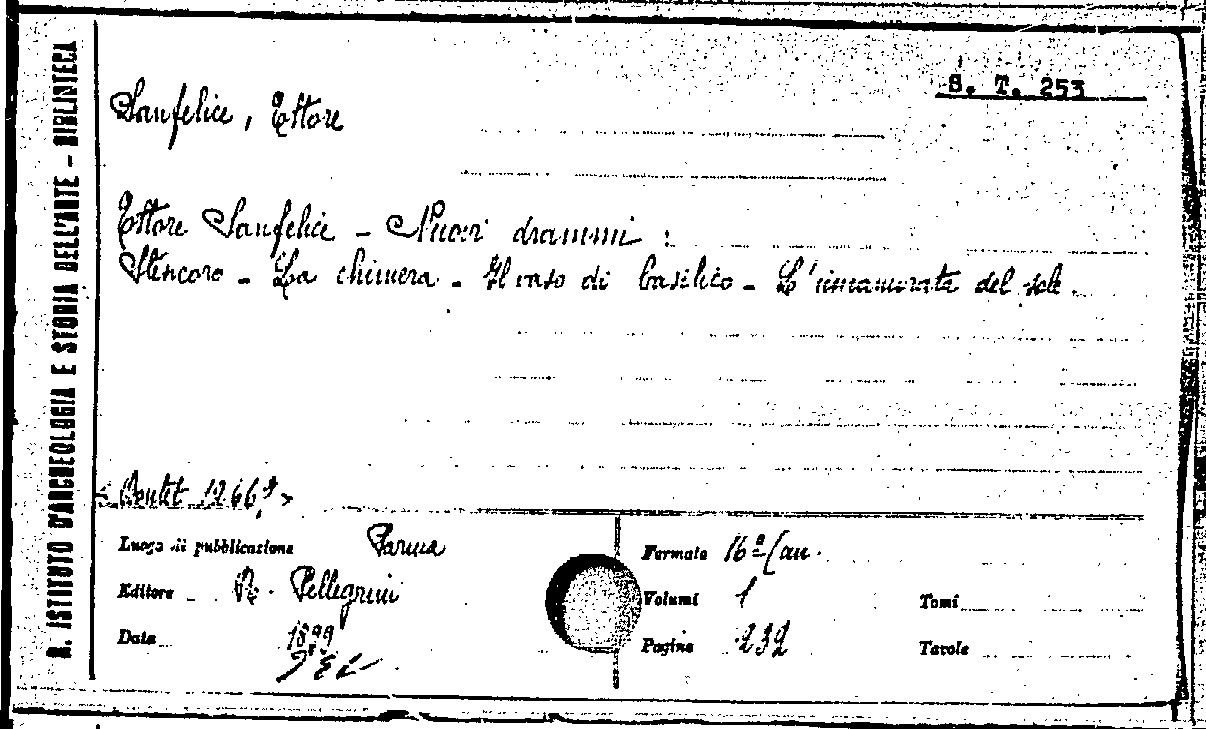 R. ISTITUTO D'ARCHEOLOGIA E STORIA DELL'ARTE - BIBLIOTECA
S. T. 253
Sanfelice, Ettore
Ettore Sanfelice - Nuovi drammi:
- La chimera - Il vaso di basilico - L'innamorata del sole.
1266
Luogo di pubblicazione Parma
Formato 16º
Editore Pellegrini
Volumi 1
Tomi
Data 1899
Pagine 232
Tavole